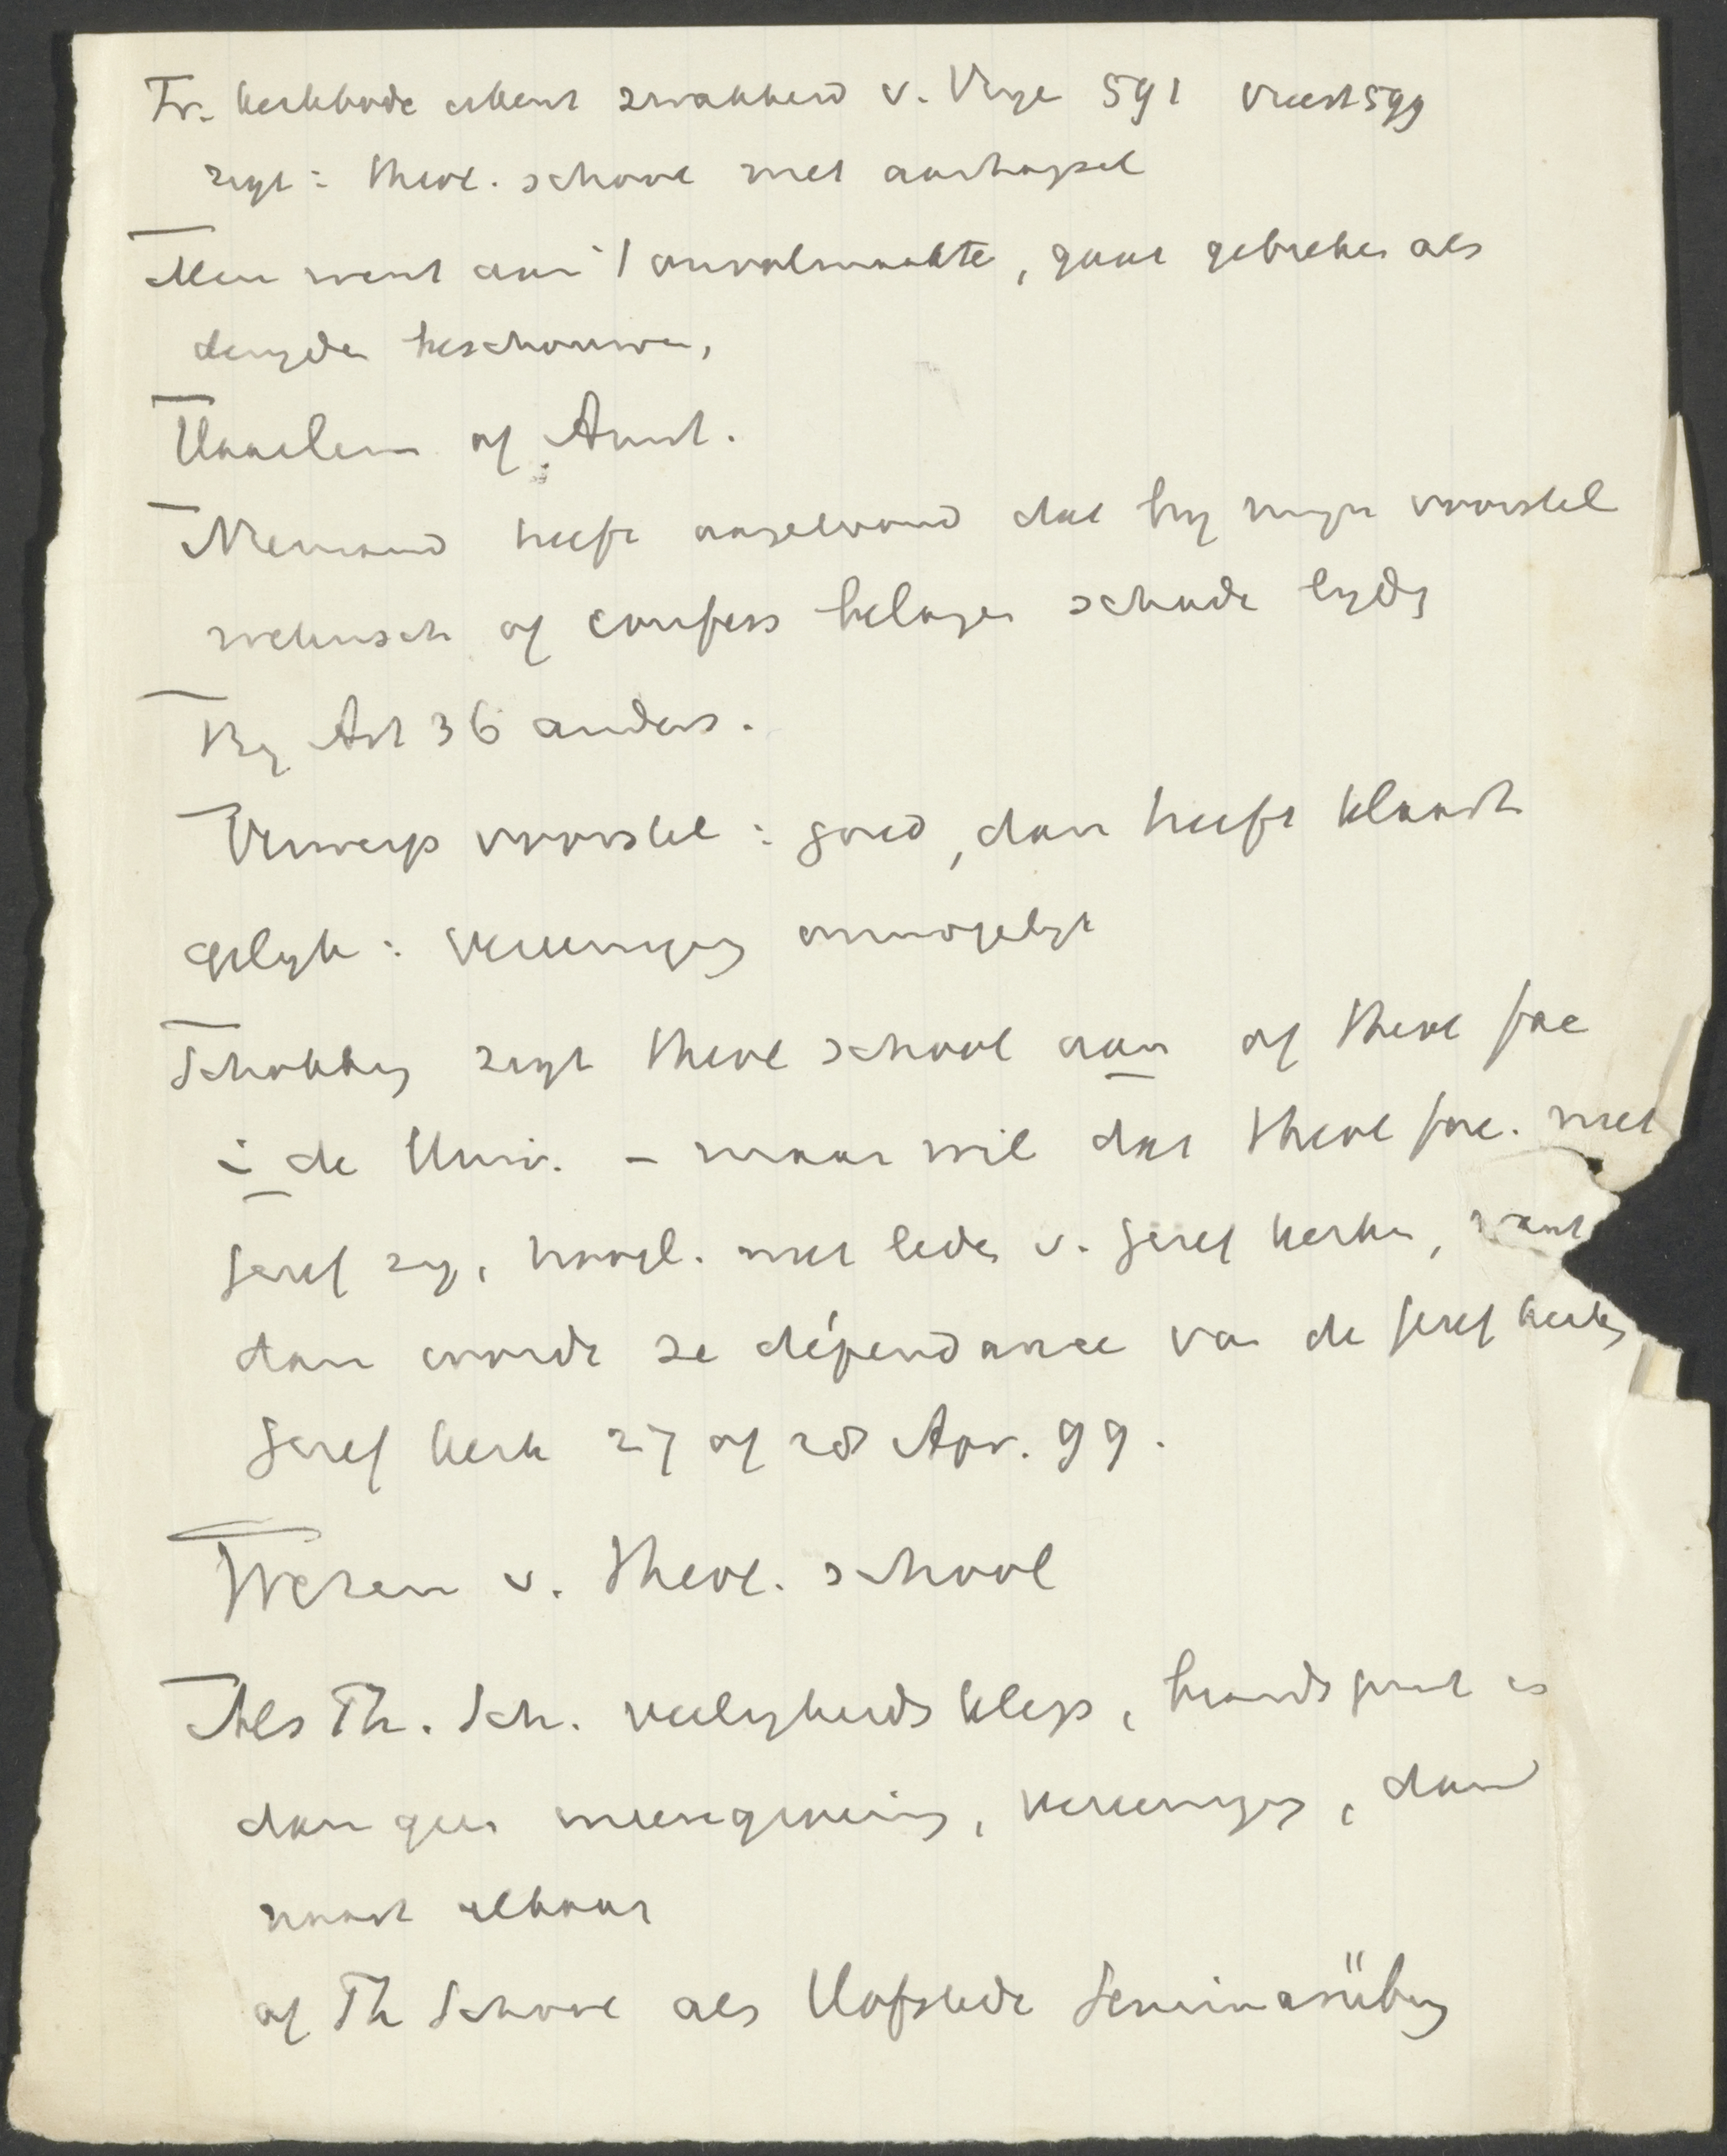 Fr. Kerkbode erkent zwakheid v. Vrije 591 vreest 599
zegt: theol. school met aanhangsel
Men went aan 't onvolmaakte, gaat gebreken als
deugden beschouwen,
Haarlem of Amst.
Niemand heeft aangetoond dat bij mijn voorstel
wetensch of confess belangen schade lijdt
Bij Art 36 anders.
Verwerp voorstel: goed, dan heeft klaagt
gelijk: vereeniging onmogelijk
Schokking zegt theol school aan of theol fac
in de Univ. – maar wil dat theol fac. niet
Geref zij, hoogl. niet leden v. Geref kerken, want
dan wordt ze dépendance van de Geref kerken
Geref kerk 27 of 28 Apr. 99.
Wezen v. theol. school
Als Th. Sch. veiligheidsklep, brandspuit is
dan geen ineensmelting, vereeniging, dan
naast elkaar
of Th School als Hofstede Seminarübung